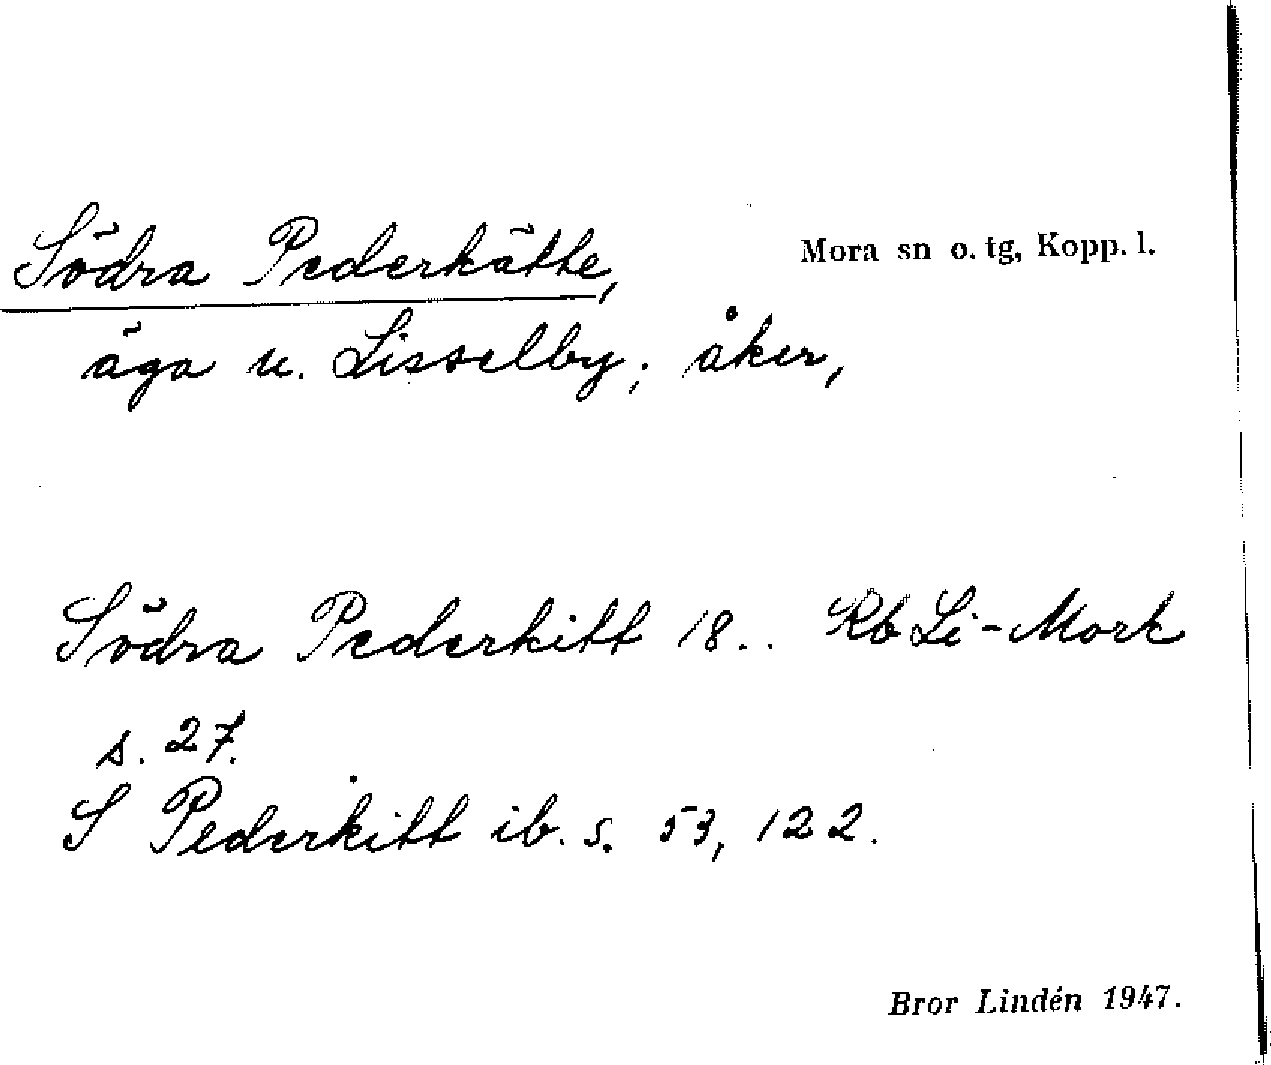 Södra Pederkätte,
Mora sn o. tg, Kopp. l.
äga u. Lisselby; åker,
Södra Pederkitt 18.. Rb Li-Mork
s. 27.
S Pederkitt ib. s. 53, 122.
Bror Lindén 1947.